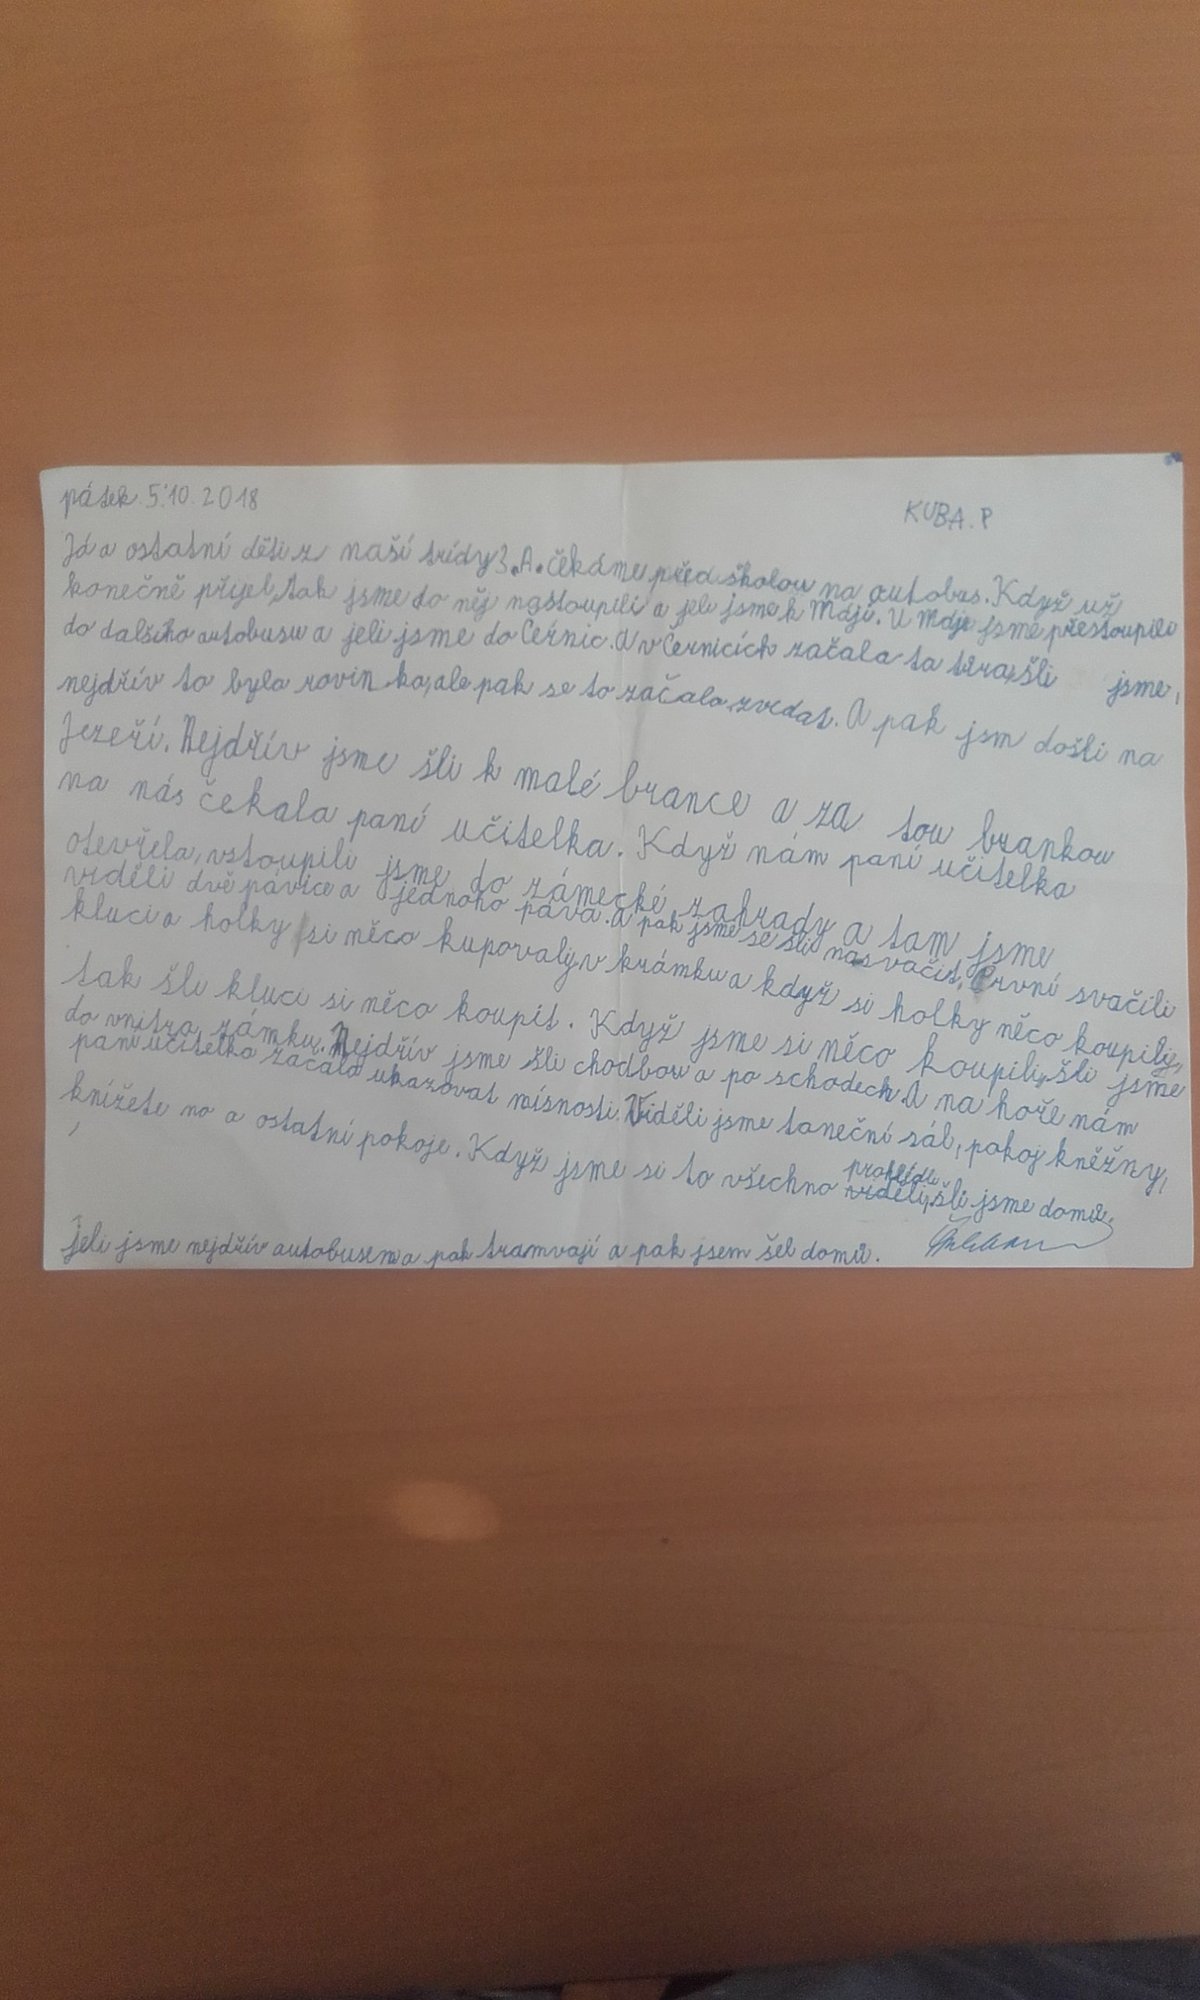 pátek 5.10.2018
KUBA.P
Já a ostatní děti z naší třídy 3.A. čekáme před školou na autobus. Když už
konečně přijel, tak jsme do něj nastoupili a jeli jsme k Máji. U Máje jsme přestoupili
do dalšího autobusu a jeli jsme do Černic. A v Černicích začala ta túra, šli jsme,
nejdřív to byla rovin ka, ale pak se to začalo zvedat. A pak jsm došli na
Jezeří. Nejdřív jsme šli k malé brance a za tou brankou
na nás čekala paní učitelka. Když nám paní učitelka
otevřela, vstoupili jsme do zámecké zahrady a tam jsme
viděli dvě pávice a jednoho páva. a pak jsme se šli nasvačit. První svačili
kluci a holky si něco kupovaly v krámku a když si holky něco koupily,
tak šli kluci si něco koupit. Když jsme si něco koupili, šli jsme
do vnitra zámku. Nejdřív jsme šli chodbou a po schodech. A na hoře nám
paní učitelka začala ukazovat mísnosti. Viděli jsme taneční sál, pokoj kněžny,
knížete no a ostatní pokoje. Když jsme si to všechno viděli, prohlédli šli jsme domů.
jeli jsme nejdřív autobusem a pak tramvají a pak jsem šel domů.